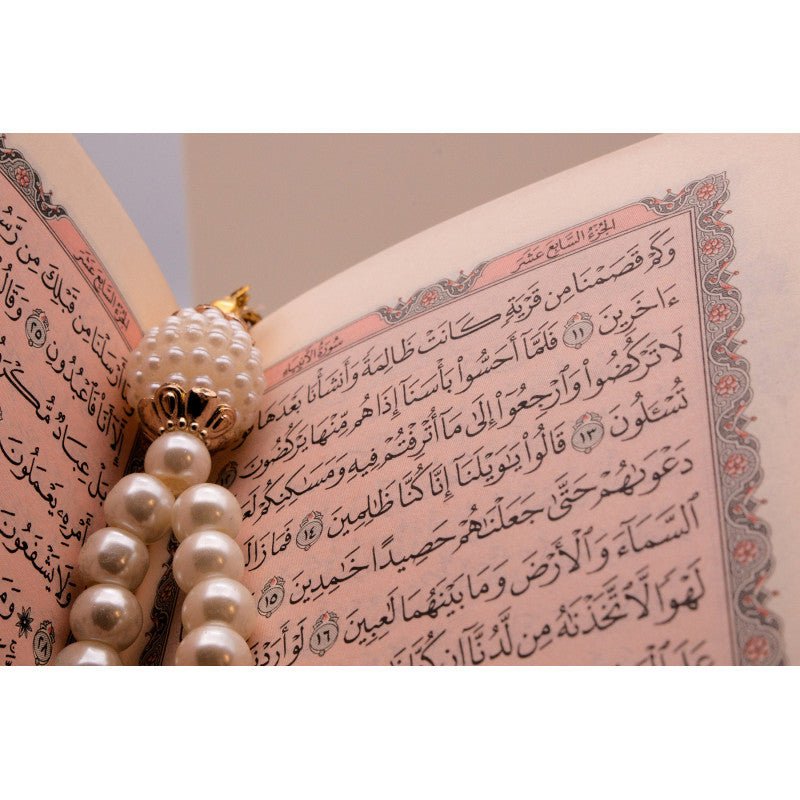 الجزء السابع عشر
سورة الأنبياء
وَكَمْ قَصَمْنَا مِن قَرْيَةٍ كَانَتْ ظَالِمَةً وَأَنشَأْنَا بَعْدَهَا
ءَاخَرِينَ ١١ فَلَمَّآ أَحَسُّوا۟ بَأْسَنَآ إِذَا هُم مِّنْهَا يَرْكُضُونَ ١٢
لَا تَرْكُضُوا۟ وَٱرْجِعُوٓا۟ إِلَىٰ مَآ أُتْرِفْتُمْ فِيهِ وَمَسَـٰكِنِكُمْ
تُسْـَٔلُونَ ١٣ قَالُوا۟ يَـٰوَيْلَنَآ إِنَّا كُنَّا ظَـٰلِمِينَ ١٤ فَمَا زَالَت
دَعْوَىٰهُمْ حَتَّىٰ جَعَلْنَـٰهُمْ حَصِيدًا خَـٰمِدِينَ ١٥
ٱلسَّمَآءَ وَٱلْأَرْضَ وَمَا بَيْنَهُمَا لَـٰعِبِينَ ١٦ لَوْ أَرَدْنَآ
لَهْوًا لَّٱتَّخَذْنَـٰهُ مِن لَّدُنَّآ إِن كُنَّا
الجزء السابع عشر
مِن قَبْلِكَ مِن رَّسُولٍ
فَٱعْبُدُونِ ٢٥ وَقَالُوا۟
بَلْ عِبَادٌ مُّكْرَمُونَ
يَعْمَلُونَ
وَلَا يَشْفَعُونَ